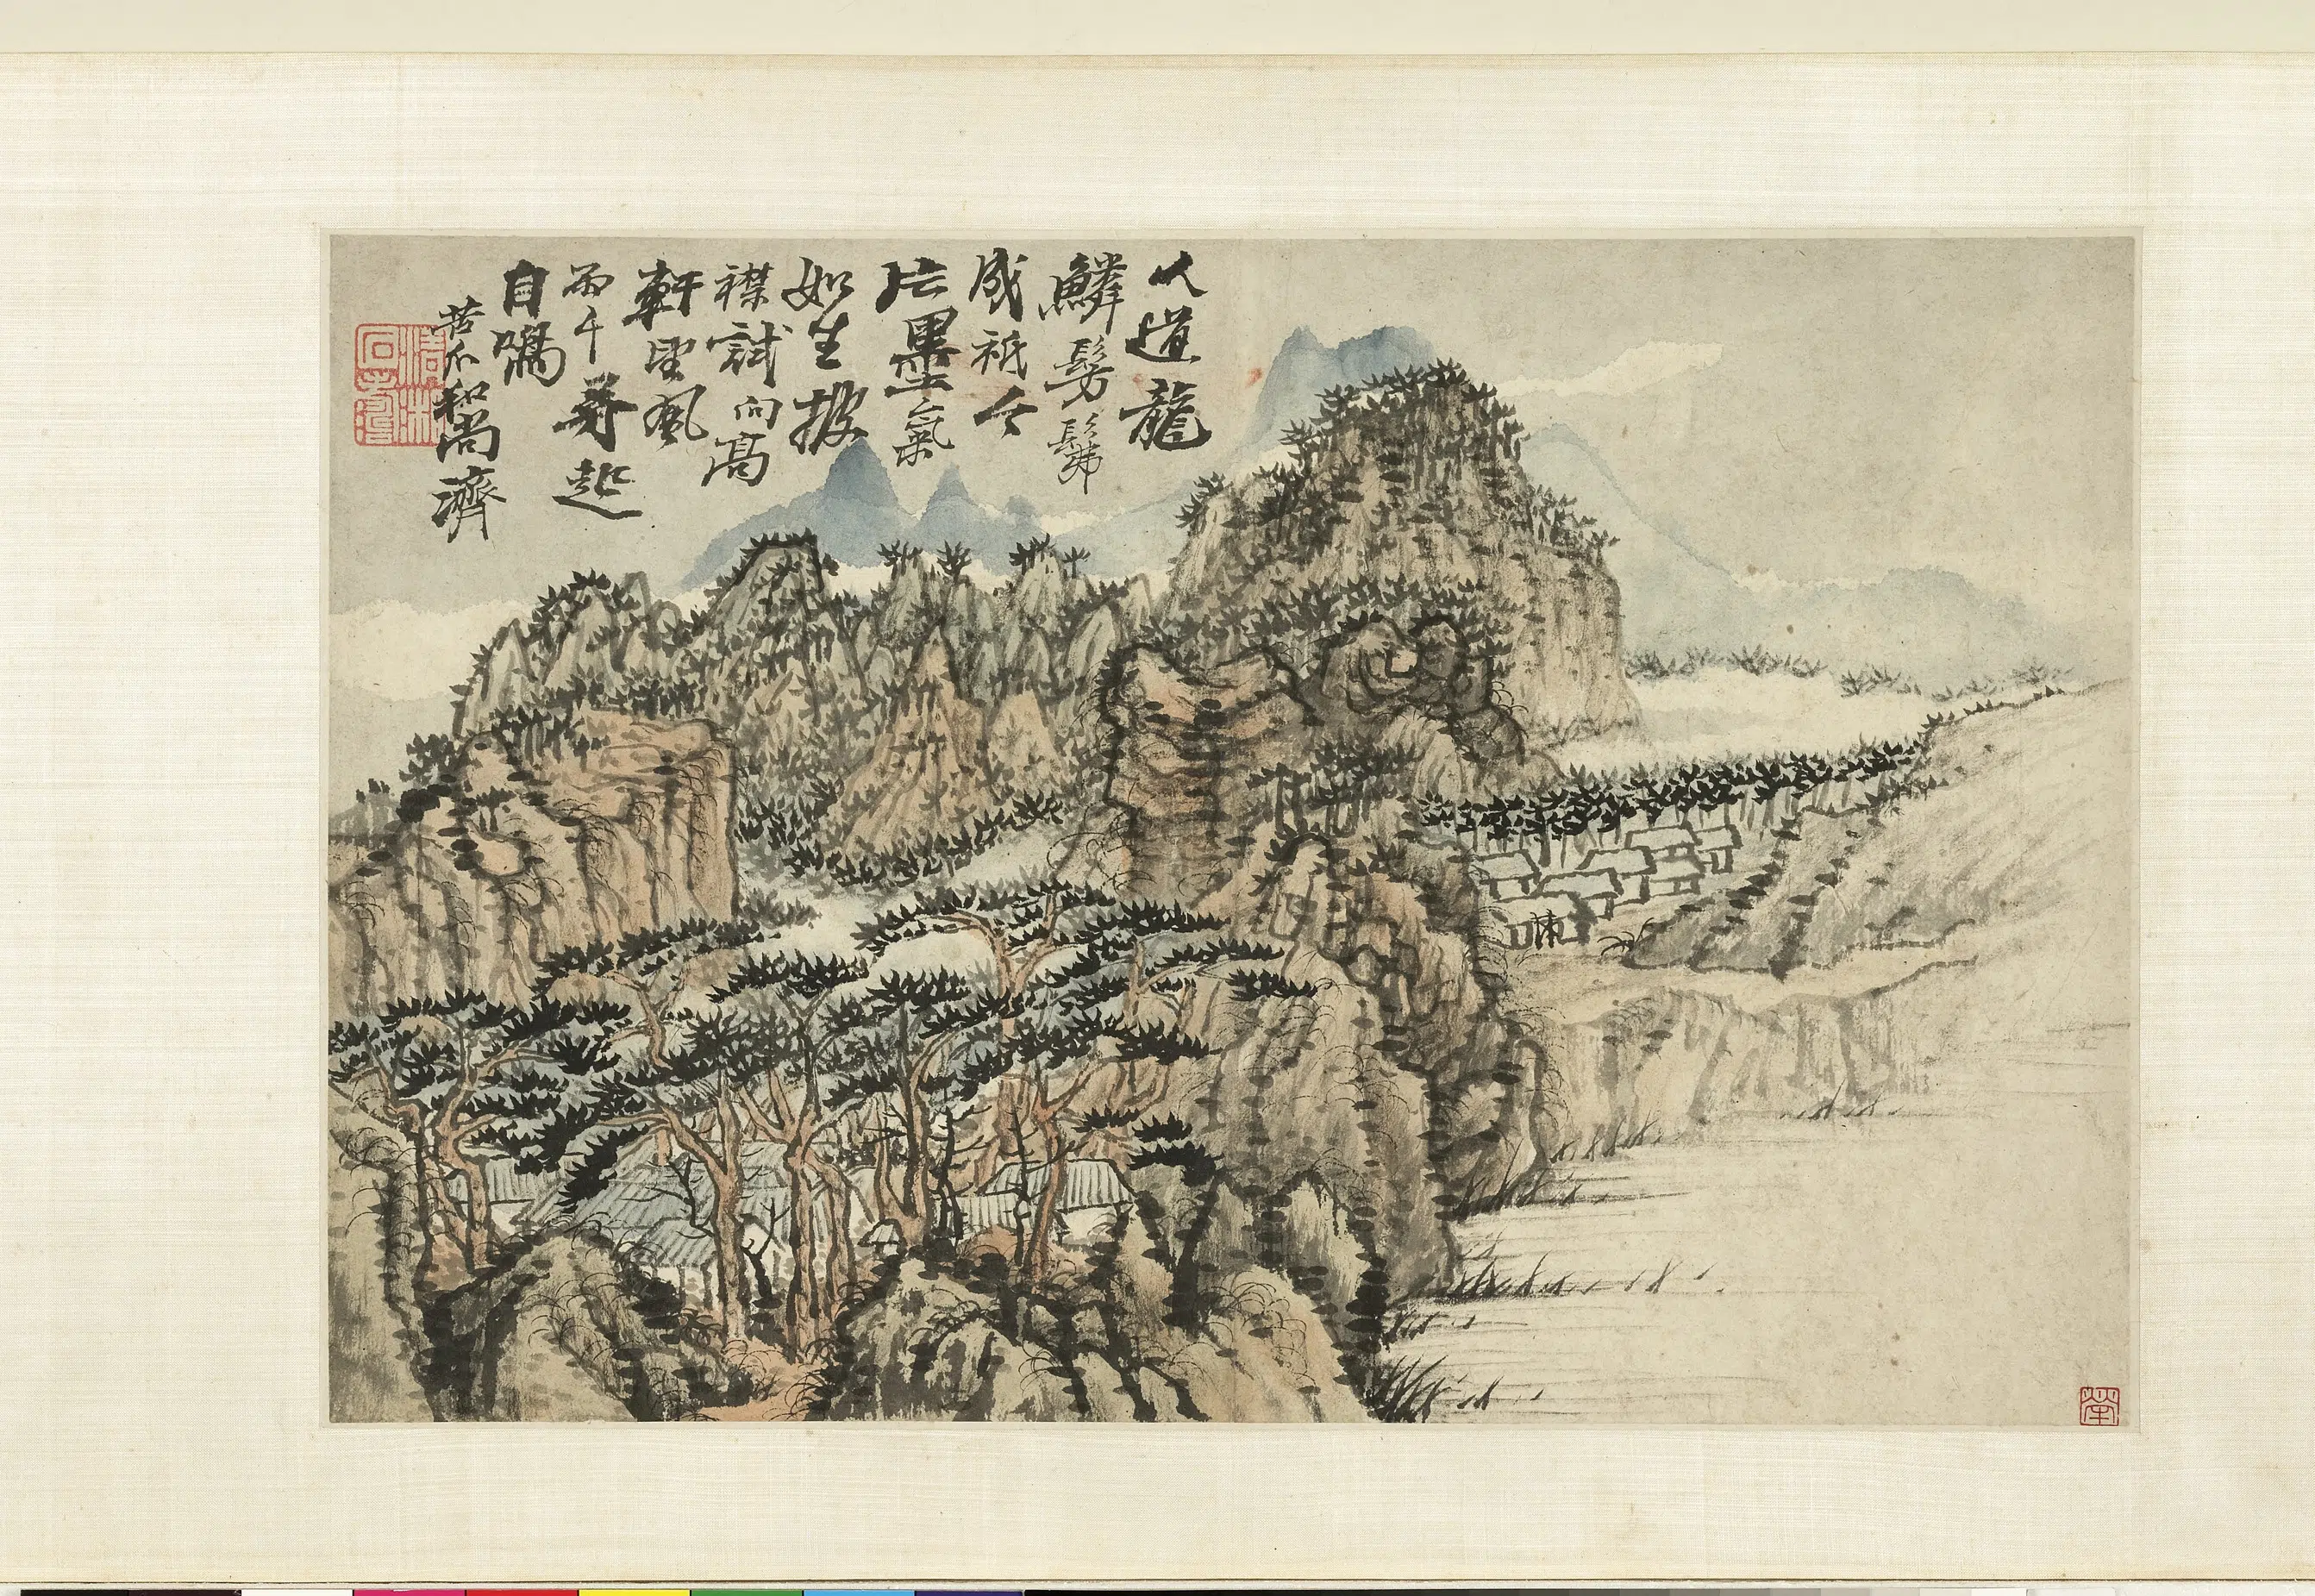 人道龍
鱗髣髴
成祇今
片墨氣
如生披
襟試向
高
軒望風
雨千尋起
自鳴
苦瓜和尚濟
清湘
石濤